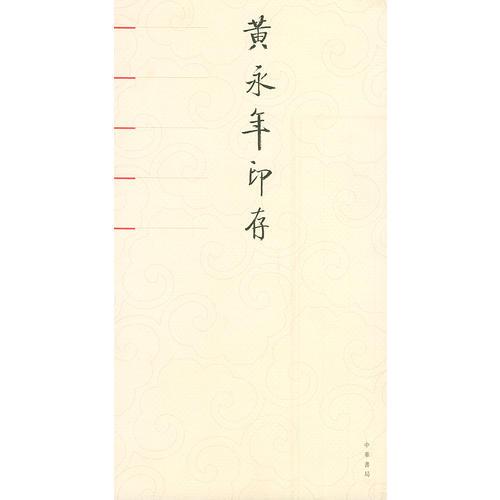 黄永年印存
中華書局